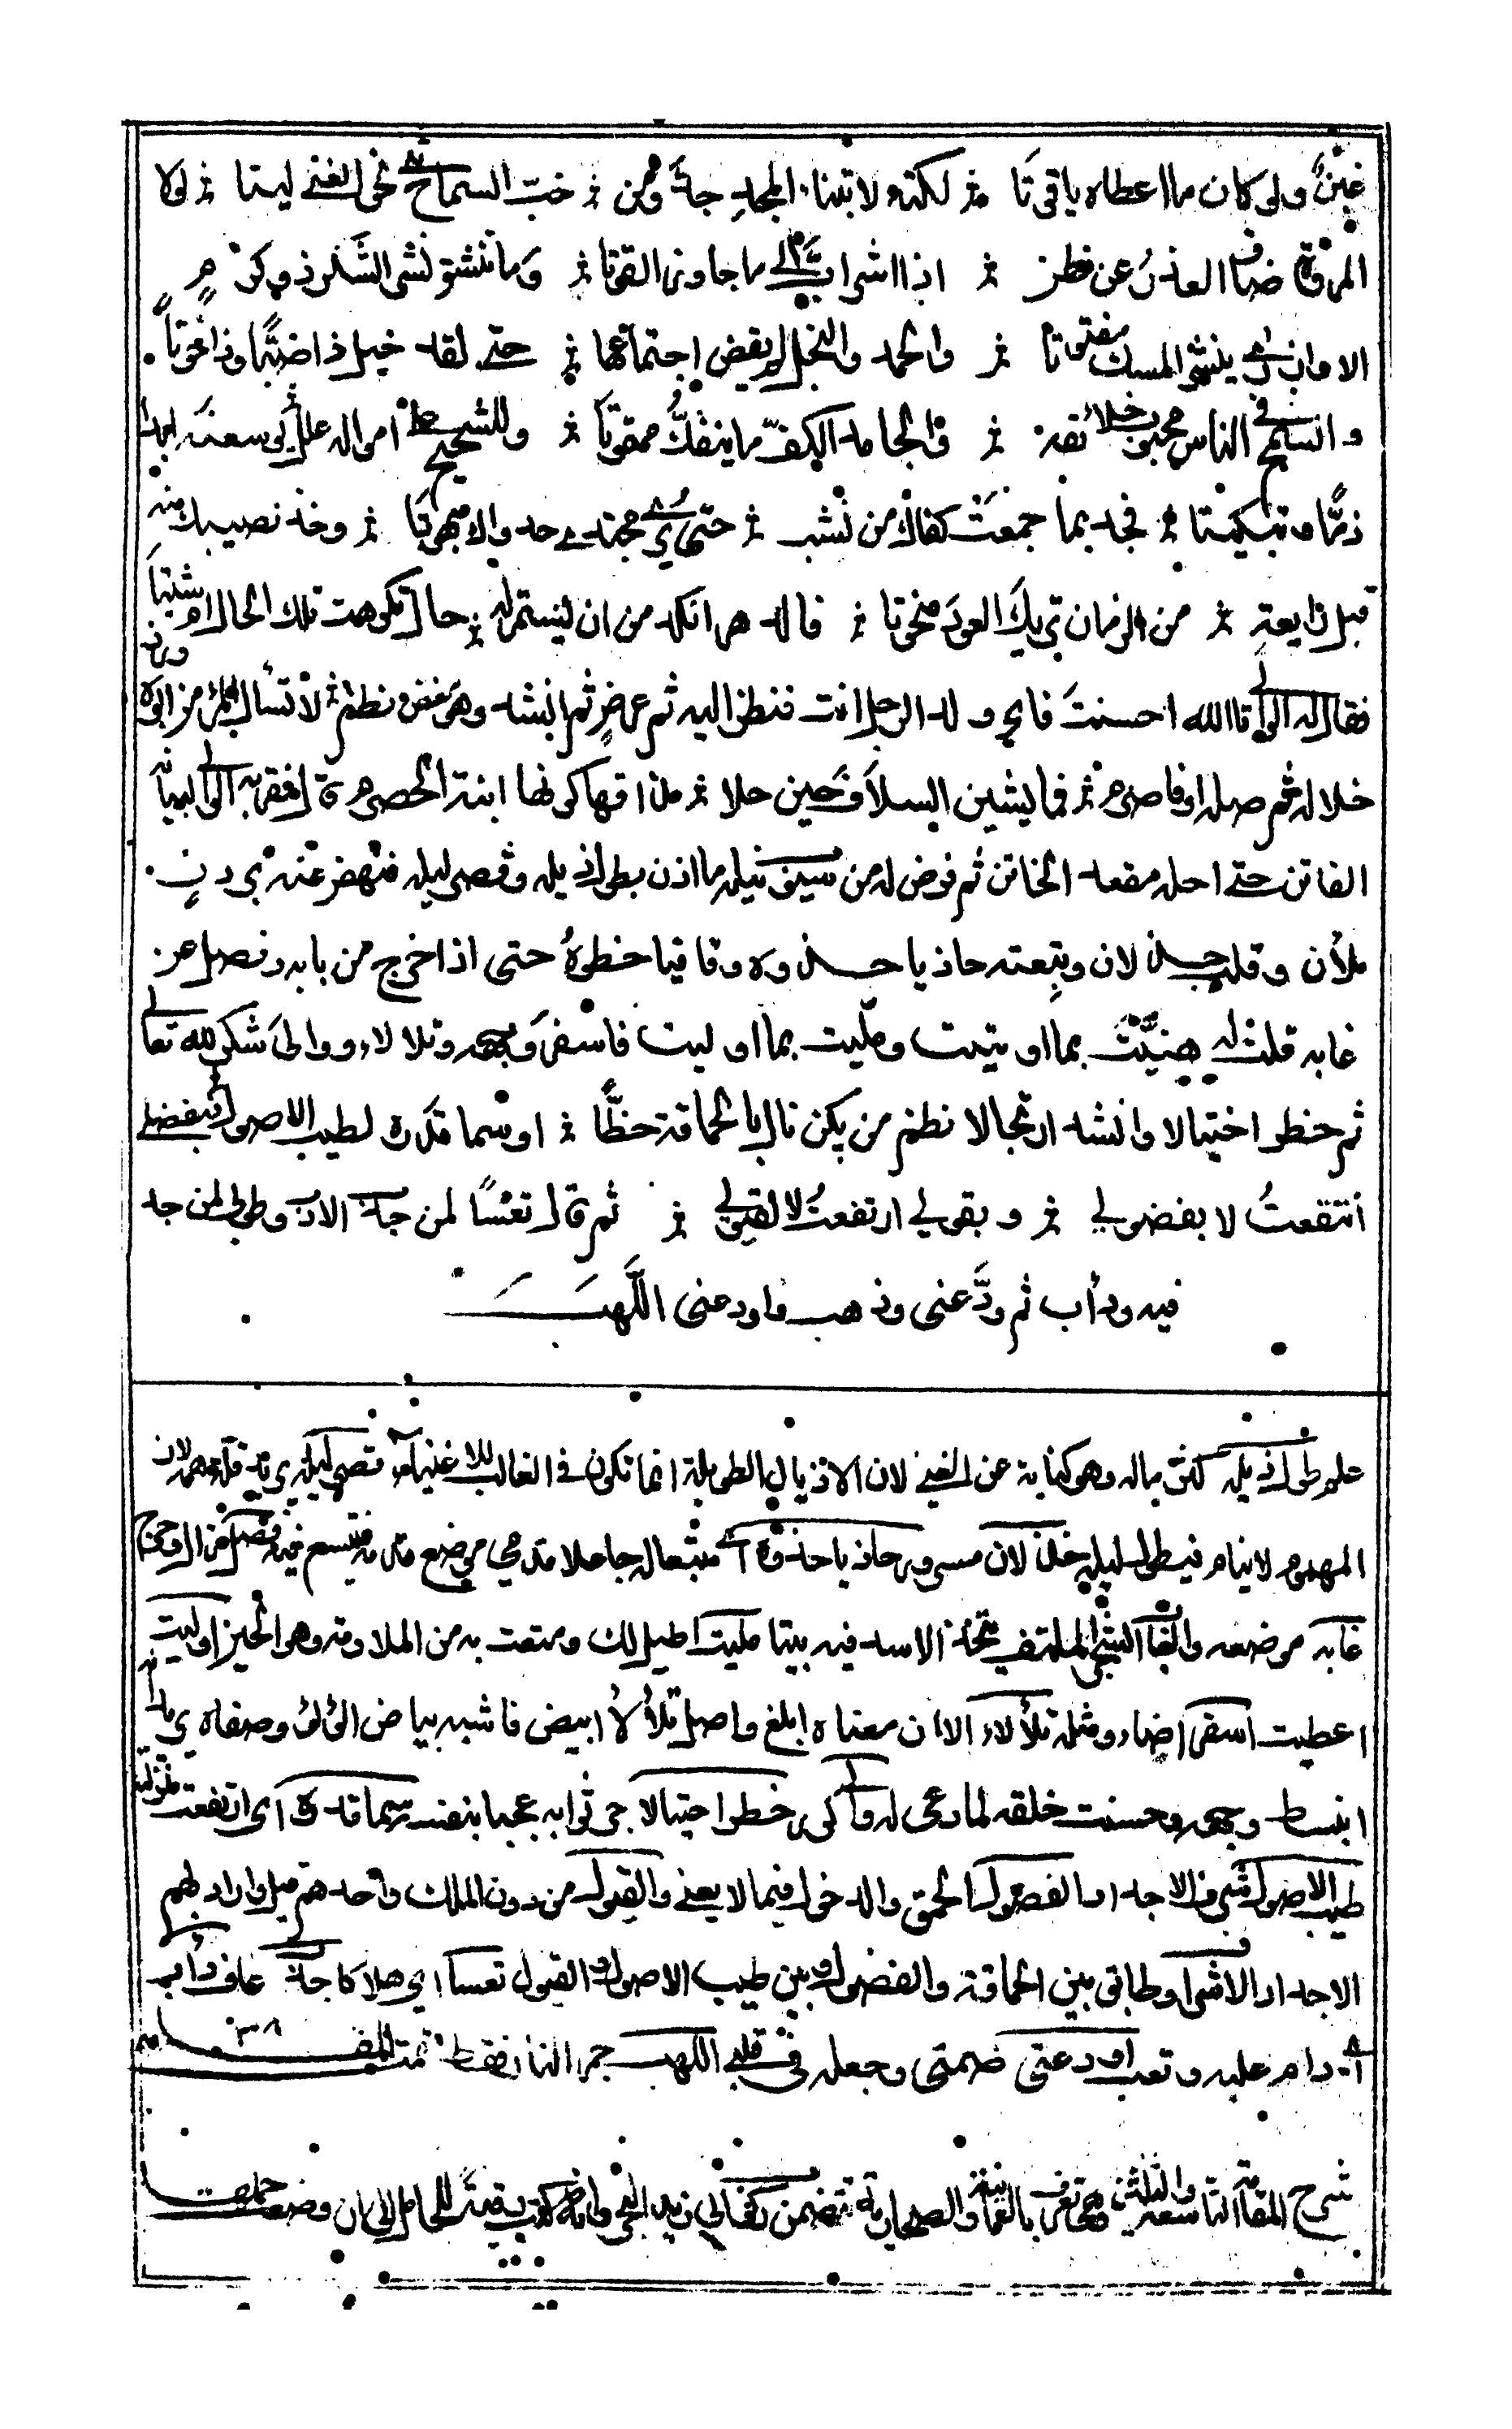 غبن ولو كان ما اعطاه ياقوتا ؛ لكنه لابتناء المجد جدّ ومن ؛ حب السماح ثنى نحو الغنى ليتا ؛ لولا
المروة ضاق العذر عن فطن ؛ اذا اشرأب الى ما جاوز القوتا ؛ وما تنشق نشر الشكر ذو كرم
الا وازرى بنشر المسك مفتوتا ؛ والحمد والبخل لم يقض اجتماعهما ؛ حتى لقد خيل ذا ضبّا وذا حوتا
والسمح في الناس محبوب خلائقه ؛ والجامد الكفّ ما ينفكّ ممقوتا ؛ وللشحيح على امواله علل يوسعنه ابدا
ذمّا وتبكيتا ؛ فجد بما جمعت كفاك من نشب ؛ حتى يرى مجتدي جدواك مبهوتا ؛ وخذ نصيبك منه
قبل رايعة ؛ من الزمان تريك العود منحوتا ؛ فالدهر انكد من ان يستمر به ؛ حال تكرهت تلك الحال ام شيتا
فقال له الوالي تالله احسنت فاي ولد الرجل انت فنظر اليه عن عرض ثم انشد وهو مغض نظم ؛ لا تسال المرء من ابوه ورز
خلاله ثم صله او فاصرم ؛ فما يشين السلاف حين حلا ؛ مذاقها كونها ابنة الحصرم قال فقربه الوالي لبيانه
الفاتن حتى احله مقعد الخاتن ثم فرض له من سيوب نيله ما اذن بطول ذيله وقصر ليله فنهض عنه بردن
ملآن وقلب جذلان وتبعته حاذيا حذوه وقافيا خطوه حتى اذا خرج من بابه وفصل عن
غابه قلت له هنيت بما اوتيت ومليت بما اوليت فاسفر وجهه وتلالا ووالى شكر لله تعالى
ثم خطر اختيالا وانشد ارتجالا نظم من يكن نال بالحماقة حظّا ؛ او سما قدره لطيب الاصول فبفضلي
انتفعت لا بفضولي ؛ وبقولي ارتفعت لا بقيولي ؛ ثم قال تعسًا لمن جدب الادب وطوبى لمن جد
فيه ودأب ثم ودّعني وذهب واودعني اللّهب
علم طول ذيله كثرة ماله وهو كناية عن الغني لان الاذيال الطويلة انما تكون في الغالب للاغنياء قصر ليله يريد قلة همه لان
المهموم لا ينام فيطول ليله جذلان مسرور حاذيا حذوه اي متبعا له جاعلا قدمي موضع قدمه فصل خرج
غابه موضعه والغاب الشجر الملتف يتخذ الاسد فيه بيتا مليت اطيل لك ومتعت به من الملاوة وهو الحين اوليت
اعطيت اسفر اضاء ومثله تلألأ الا ان معناه ابلغ واصل تلألأ ابيض فاشبه بياض اللؤلؤ وصفاه يريد انه
انبسط وجهه وحسنت خلقه لما دعي له خطر اختيالا جر ثوبه عجبا بنفسه سما قدره اي ارتفعت منزلته
طيب الاصول شرف الاجداد الفضول الحمق والدخول فيما لا يعني والقيول من دون الملك واحدهم قيل واراد بهم
الاجداد الاشراف وطابق بين الحماقة والفضول وبين طيب الاصول والقيول تعسا اي هلاكا جدب عاف دأب
اي دام عليه وتعب اودعني ضمنني وجعله في قلبي اللهب جمر النار فقط تمت المقامة ٣٨
شرح المقامة التاسعة والثلاثين وتعرف بالعمانية والصحارية تتضمن ركوب ابي زيد البحر وانه كتب رقية للحامل الى ان وضعت حملها